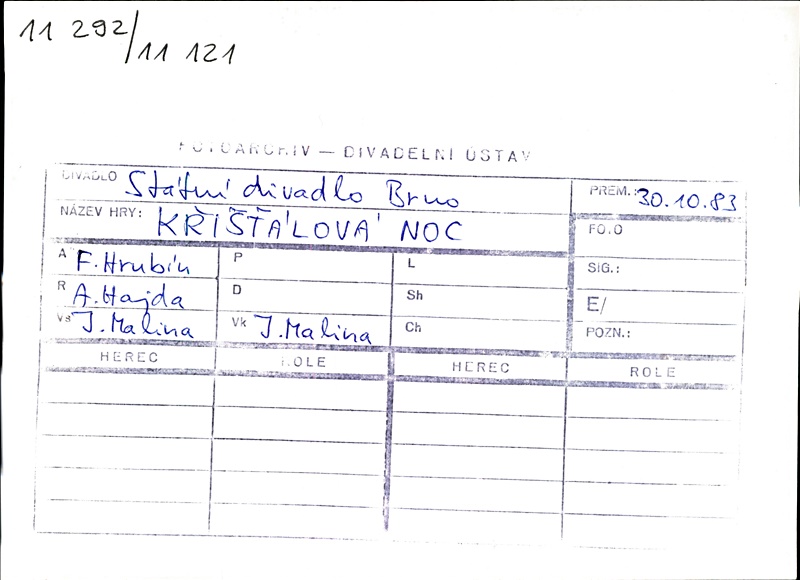 11 292/11 121
FOTOARCHIV — DIVADELNÍ ÚSTAV
DIVADLO Státní divadlo Brno
PREM.: 30.10.83
NÁZEV HRY: KŘIŠŤÁLOVÁ NOC
FOTO
A F. Hrubín P L
SIG.:
R A. Hajda D Sh
E/
Vs J. Malina Vk J. Malina Ch
POZN.:
HEREC ROLE HEREC ROLE